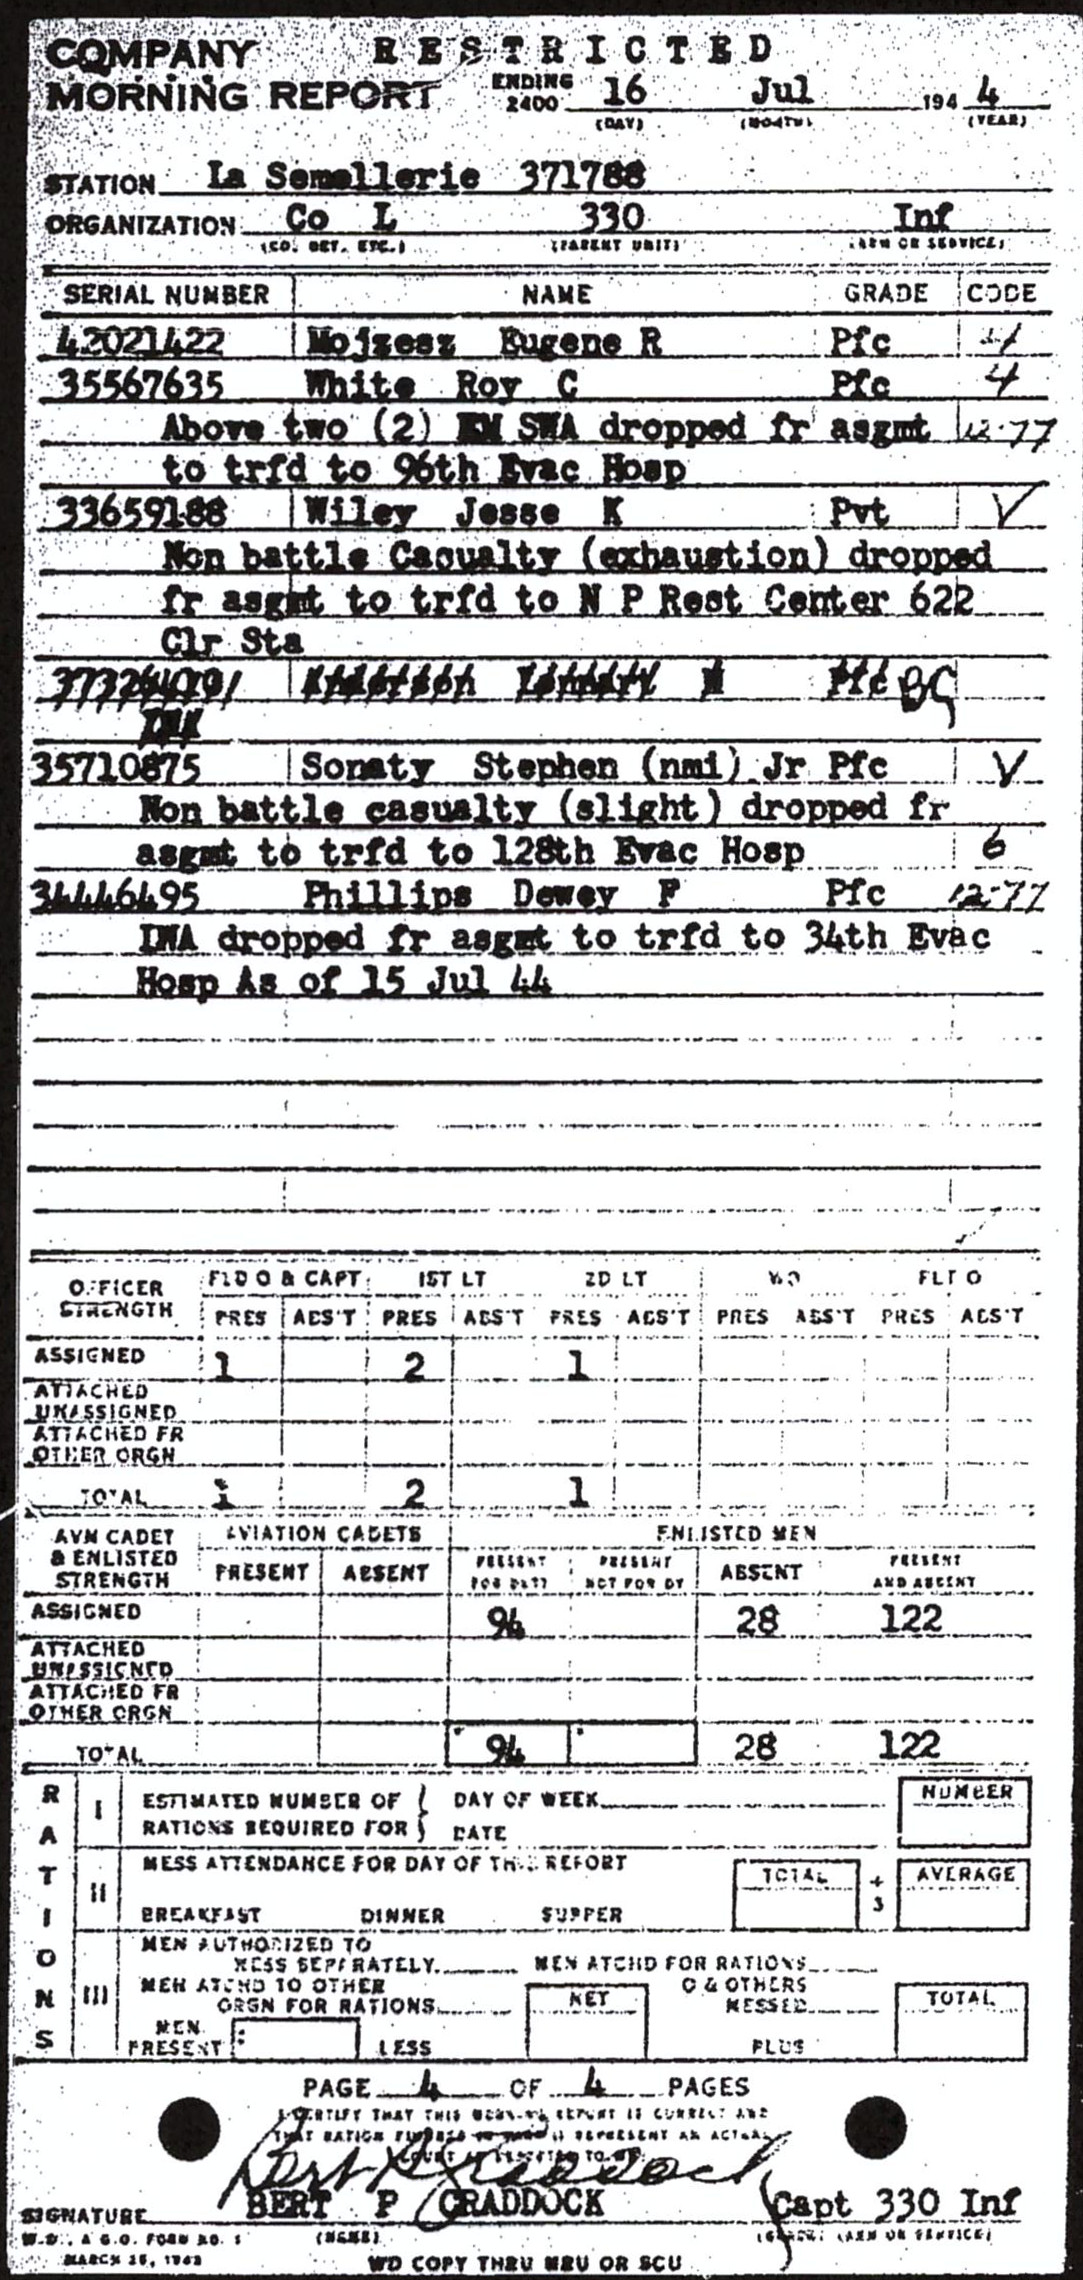 COMPANY RESTRICTED
MORNING REPORT ENDING 2400 16 Jul 194 4
(DAY) (MONTH) (YEAR)
STATION La Semellerie 371788
ORGANIZATION Co L 330 Inf
(CO. DET. ETC.) (PARENT UNIT) (ARM OR SERVICE)
SERIAL NUMBER NAME GRADE CODE
42021422 Mojzesz Eugene R Pfc 4
35567635 White Roy C Pfc 4
Above two (2) EM SWA dropped fr asgmt 12-77
to trfd to 96th Evac Hosp
33659188 Wiley Jesse K Pvt V
Non battle Casualty (exhaustion) dropped
fr asgmt to trfd to N P Rest Center 622
Clr Sta
Pfc BC
35710875 Sonaty Stephen (nmi) Jr Pfc V
Non battle casualty (slight) dropped fr
asgmt to trfd to 128th Evac Hosp 6
34446495 Phillips Dewey F Pfc 12-77
IWA dropped fr asgmt to trfd to 34th Evac
Hosp As of 15 Jul 44
OFFICER STRENGTH FLD O & CAPT 1ST LT 2D LT WO FLT O
PRES ABS'T PRES ABS'T PRES ABS'T PRES ABS'T PRES ABS'T
ASSIGNED 1 2 1
ATTACHED UNASSIGNED
ATTACHED FR OTHER ORGN
TOTAL 1 2 1
AVN CADET & ENLISTED STRENGTH AVIATION CADETS ENLISTED MEN
PRESENT ABSENT PRESENT FOR DUTY PRESENT NOT FOR DY ABSENT PRESENT AND ABSENT
ASSIGNED 94 28 122
ATTACHED UNASSIGNED
ATTACHED FR OTHER ORGN
TOTAL 94 28 122
RATIONS
I ESTIMATED NUMBER OF RATIONS REQUIRED FOR DAY OF WEEK DATE NUMBER
II MESS ATTENDANCE FOR DAY OF THIS REPORT TOTAL ÷ 3 AVERAGE
BREAKFAST DINNER SUPPER
III MEN AUTHORIZED TO MESS SEPARATELY MEN ATCHD FOR RATIONS
MEN ATCHD TO OTHER ORGN FOR RATIONS NET O & OTHERS MESSED TOTAL
MEN PRESENT LESS PLUS
PAGE 4 OF 4 PAGES
I CERTIFY THAT THIS MORNING REPORT IS CORRECT AND
THAT RATION FIGURES REPRESENT AN ACTUAL
Bert P Craddock
SIGNATURE BERT P CRADDOCK Capt 330 Inf
W.D., A.G.O. FORM NO. 1 (NAME) (GRADE) (ARM OR SERVICE)
MARCH 25, 1943
WD COPY THRU MRU OR SCU